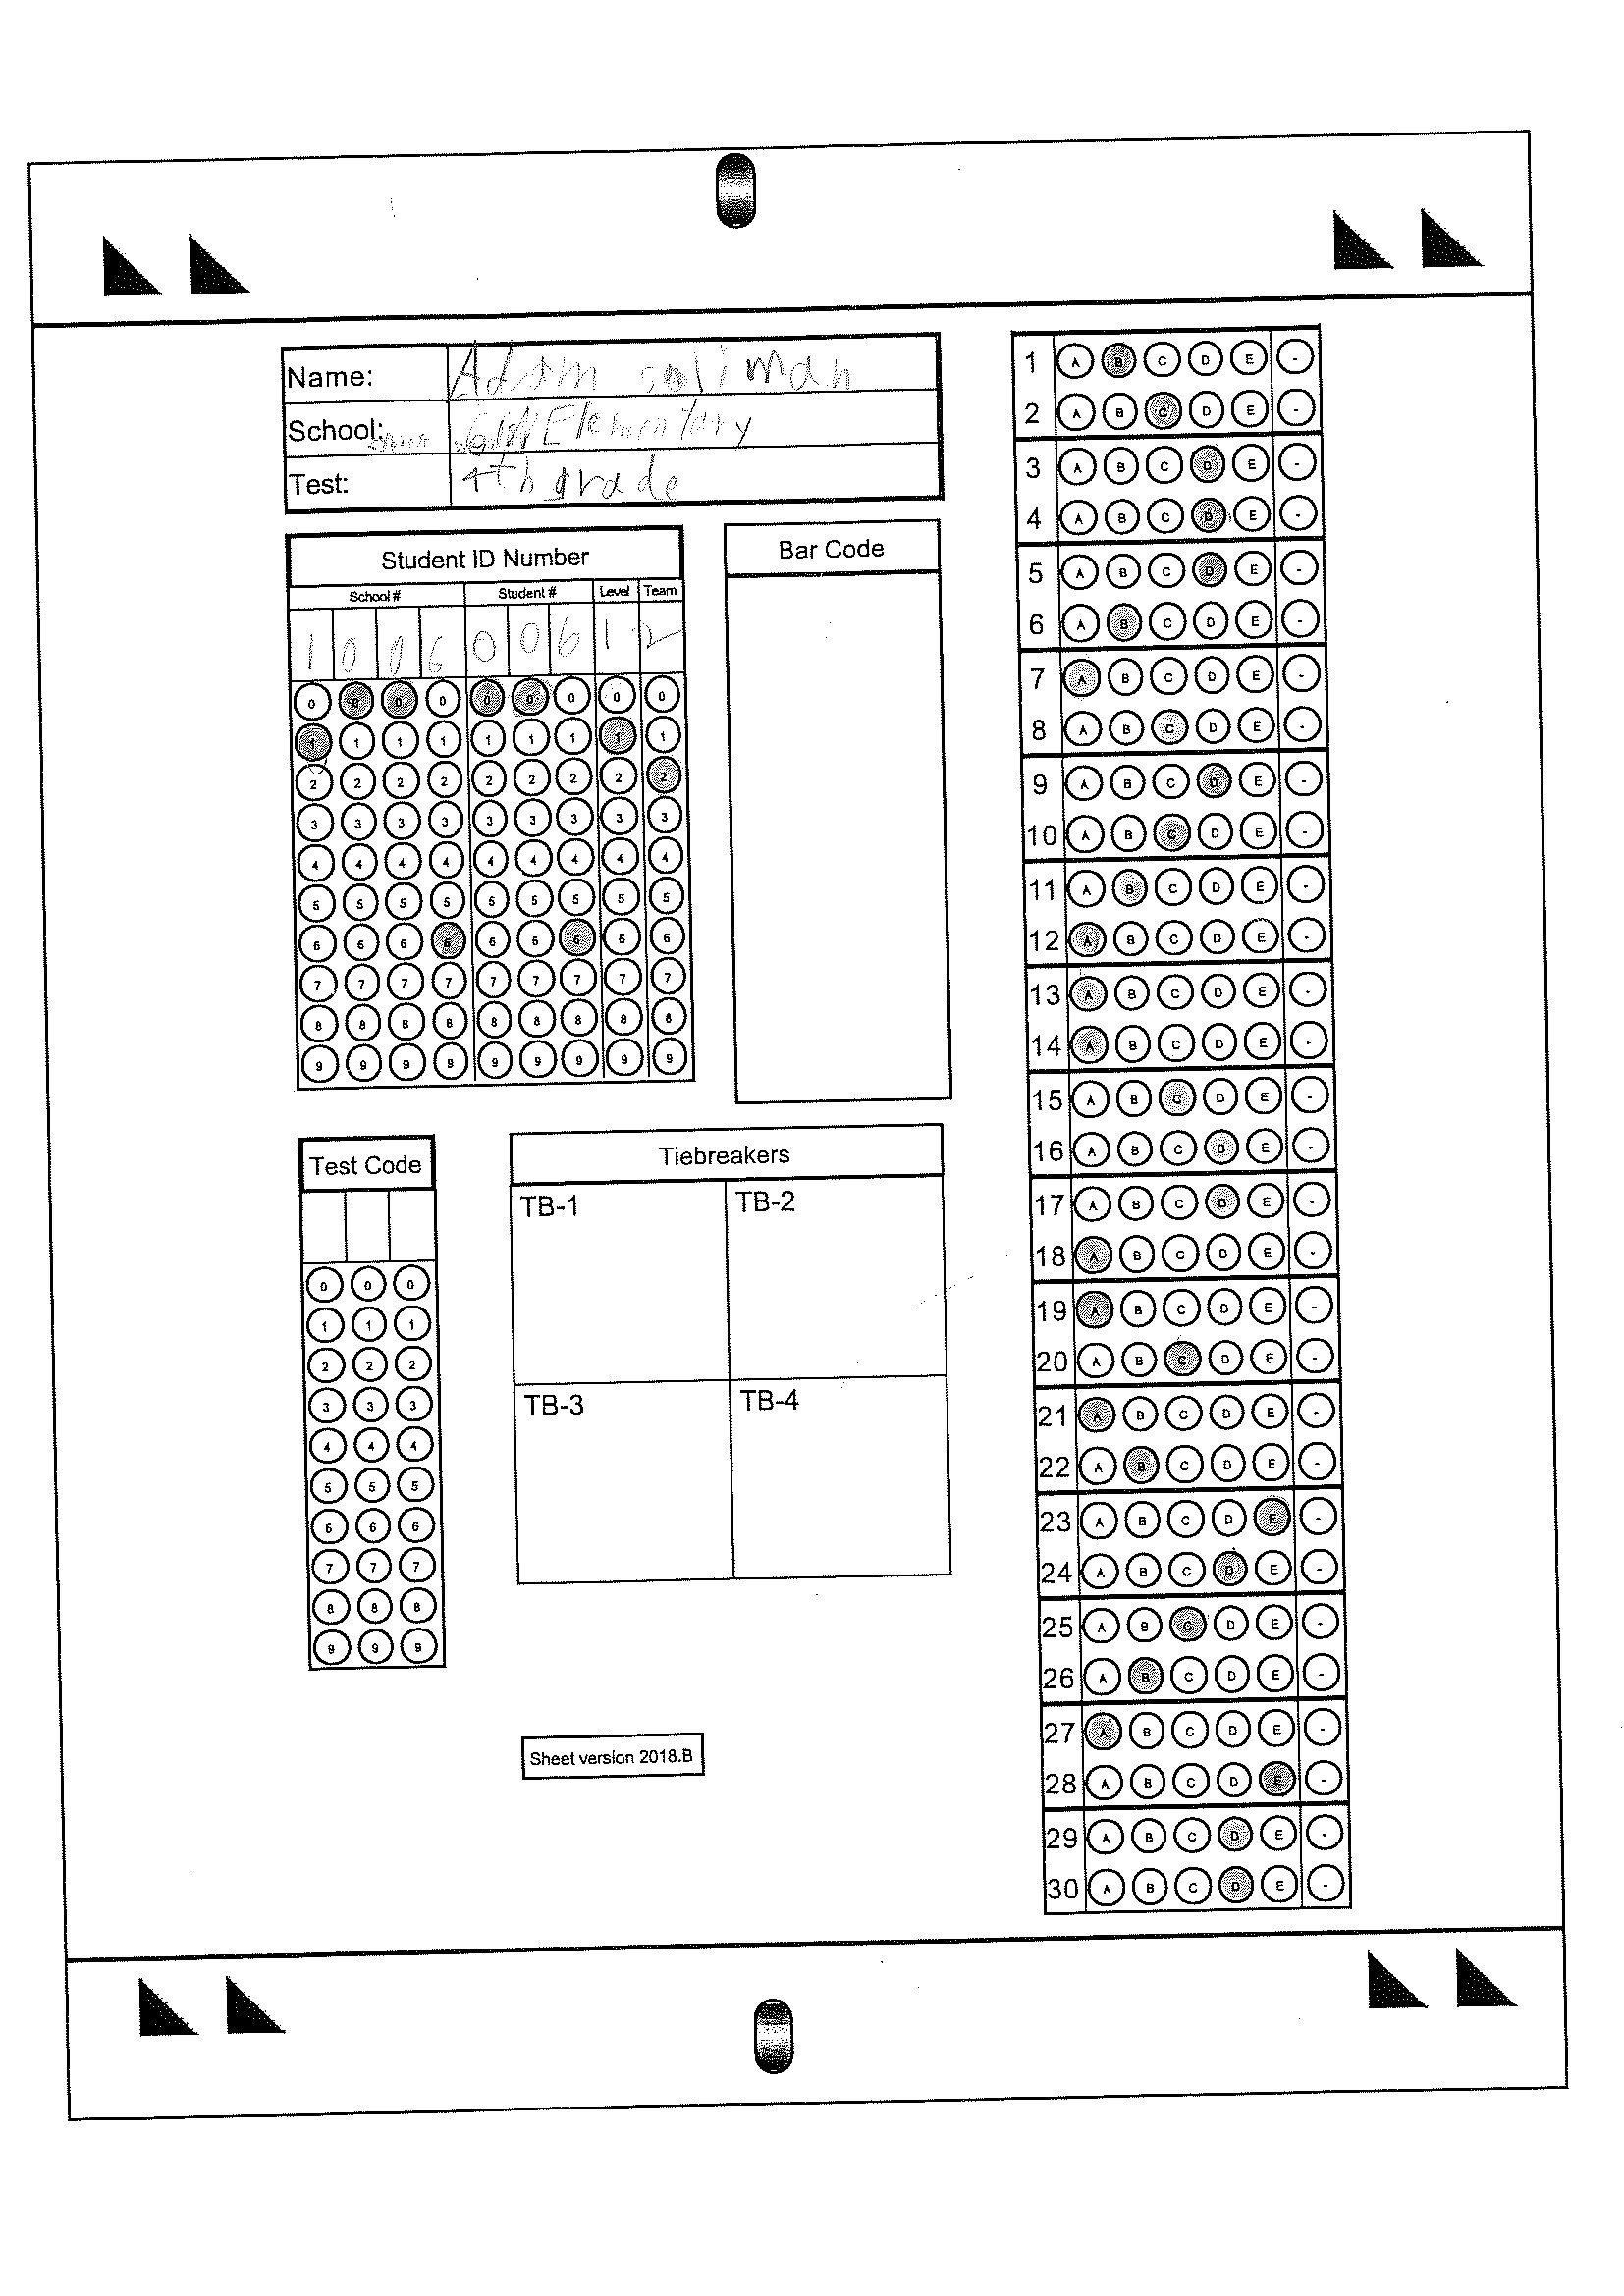 Name: Adam soliman
School: Elementary
Test: 4th grade
Student ID Number
School # Student # Level Team
1 0 0 6 0 0 6 1 2
0 0 0 0 0 0 0 0 0
1 1 1 1 1 1 1 1 1
2 2 2 2 2 2 2 2 2
3 3 3 3 3 3 3 3 3
4 4 4 4 4 4 4 4 4
5 5 5 5 5 5 5 5 5
6 6 6 6 6 6 6 6 6
7 7 7 7 7 7 7 7 7
8 8 8 8 8 8 8 8 8
9 9 9 9 9 9 9 9 9
Bar Code
Test Code
0 0 0
1 1 1
2 2 2
3 3 3
4 4 4
5 5 5
6 6 6
7 7 7
8 8 8
9 9 9
Tiebreakers
TB-1 TB-2
TB-3 TB-4
Sheet version 2018.B
1 A B C D E -
2 A B C D E -
3 A B C D E -
4 A B C D E -
5 A B C D E -
6 A B C D E -
7 A B C D E -
8 A B C D E -
9 A B C D E -
10 A B C D E -
11 A B C D E -
12 A B C D E -
13 A B C D E -
14 A B C D E -
15 A B C D E -
16 A B C D E -
17 A B C D E -
18 A B C D E -
19 A B C D E -
20 A B C D E -
21 A B C D E -
22 A B C D E -
23 A B C D E -
24 A B C D E -
25 A B C D E -
26 A B C D E -
27 A B C D E -
28 A B C D E -
29 A B C D E -
30 A B C D E -